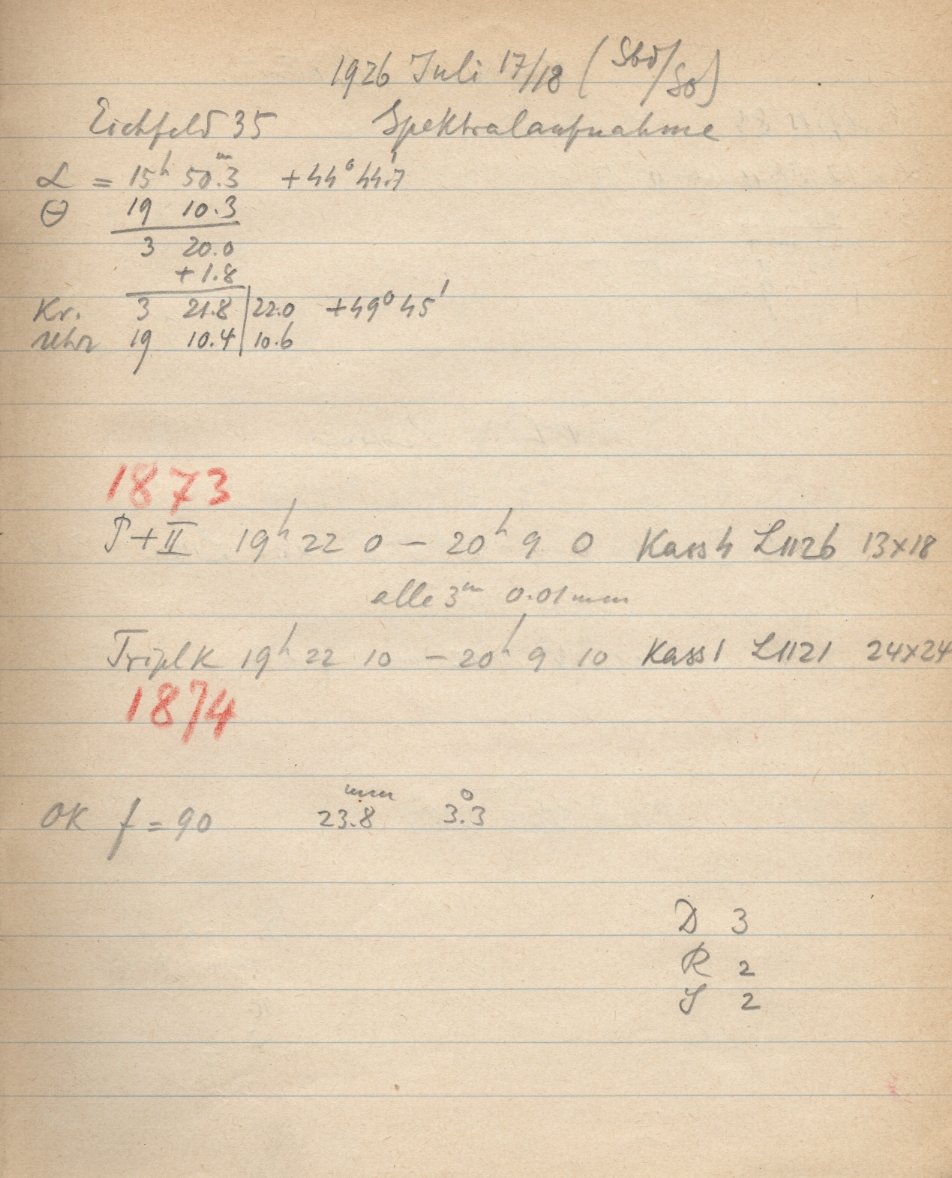 1926 Juli 17/18 (Sbd/So)
Eichfeld 35 Spektralaufnahme
α = 15h 50.3m +44° 44.7'
Θ 19 10.3
3 20.0
+1.8
Kr. 3 21.8 | 22.0 +49° 45'
Uhr 19 10.4 | 10.6
1873
I+II 19h 22 0 – 20h 9 0 Kass 4 L1126 13×18
alle 3m 0.01 mm
Tripl K 19h 22 10 – 20h 9 10 Kass 1 L1121 24×24
1874
OK f = 90 23.8mm 3.3°
D 3
R 2
S 2